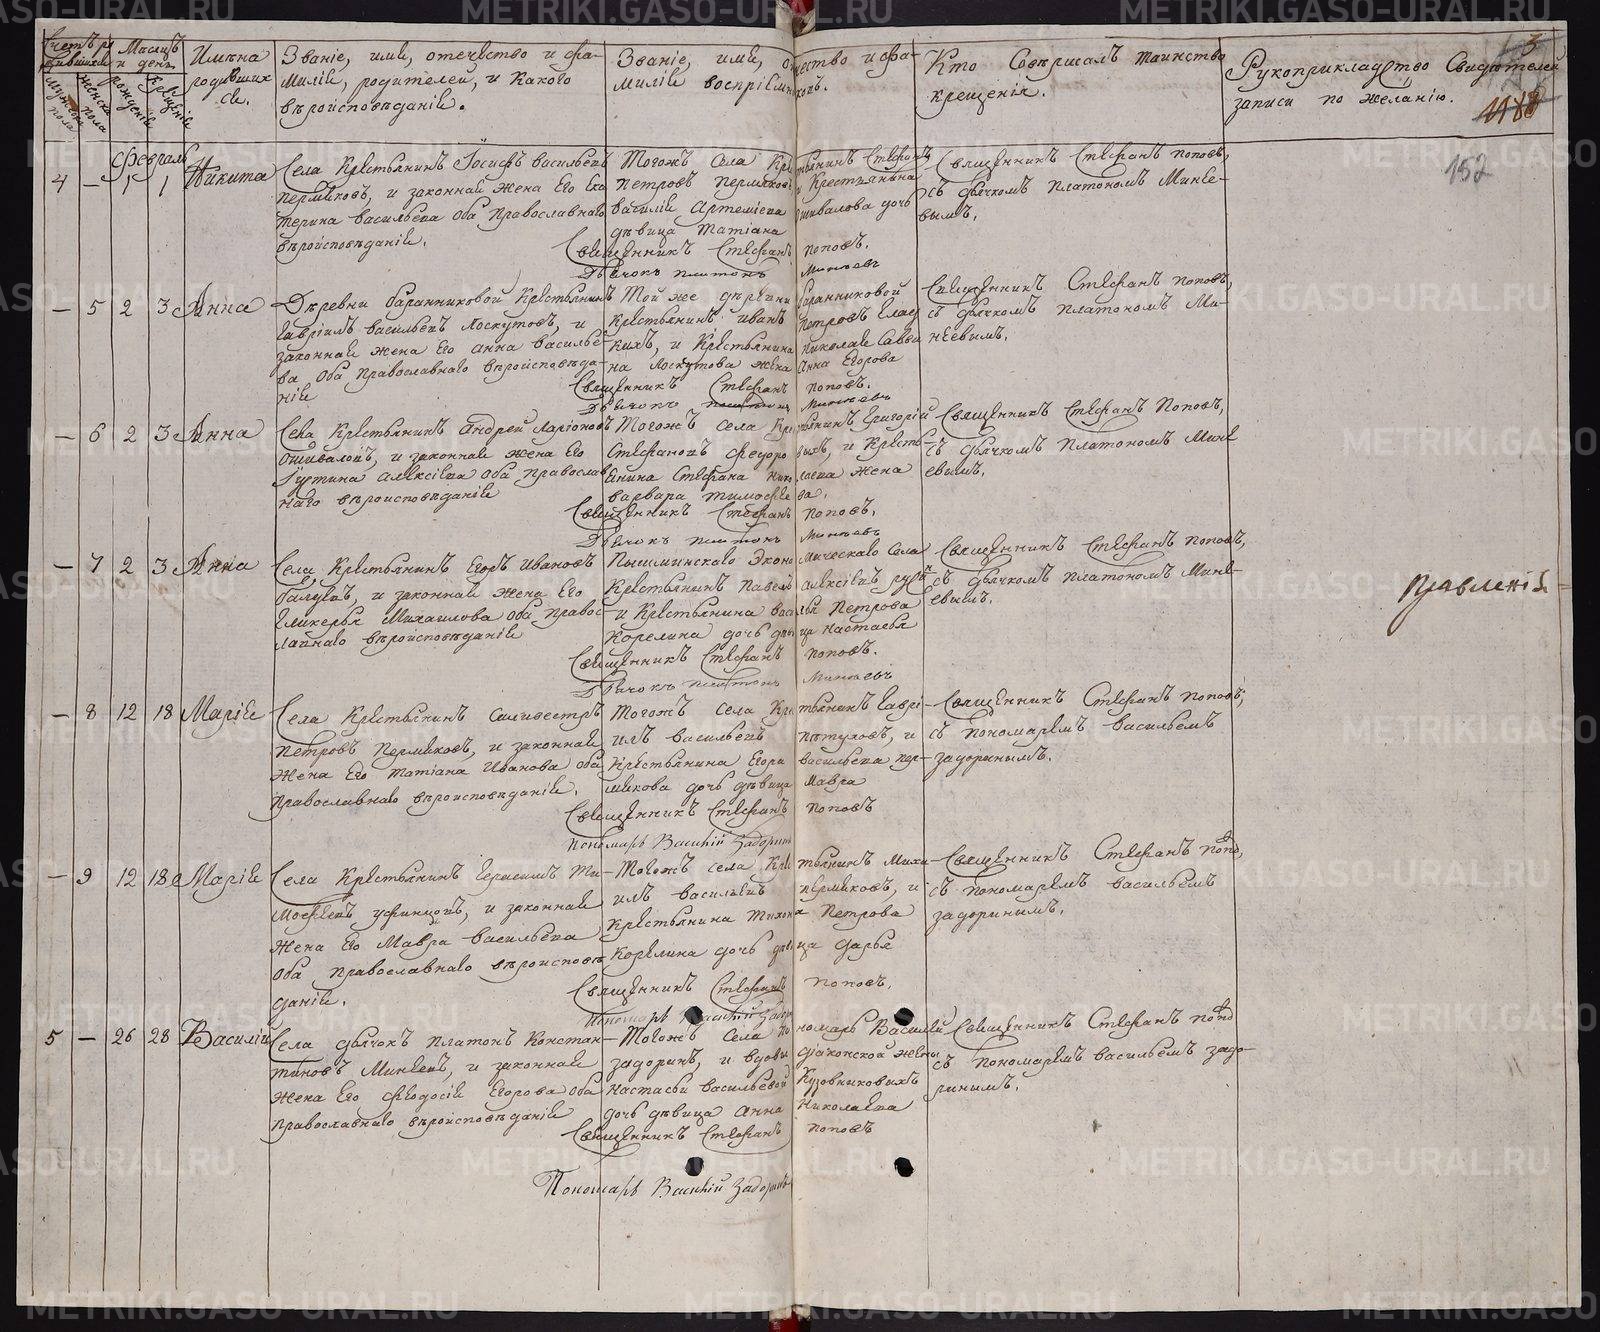 METRIKI.GASO-URAL.RU
Счетъ ро-
дившихся
Мужеска пола
Женска пола
Мѣсяцъ
и день
рожденія
крещенія
Имена
родивших
ся.
Званіе, имя, отечество и фа-
милія, родителей, и какого
вѣроисповѣданія.
Званіе, имя, отчество и фа-
милія воспріемниковъ.
Кто совершалъ таинство
крещенія.
Рукоприкладство свидѣтелей
записи по желанію.
3
152
Февраль
4 — 1 1 Никита
Села крестьянинъ Іосифъ васильевъ
Пермяковъ, и законная жена его Ека
терина васильева оба православнаго
вѣроисповѣданія.
Тогожъ села крестьянинъ Стефанъ
петровъ пермяковъ и крестьянина
василія Артеміева ошивалова дочь
дѣвица татіана
Священникъ Стефанъ поповъ,
съ дьячкомъ платономъ Мине-
вымъ.
Священникъ Стефанъ поповъ.
Дьячокъ платонъ Минѣевъ
— 5 2 3 Анна
Деревни баранниковой крестьянинъ
Гавріилъ васильевъ лоскутовъ, и
законная жена его анна василье-
ва, оба православнаго вѣроисповѣда-
нія
Той же деревни баранниковой
крестьянинъ иванъ петровъ
кихъ, и крестьянина николая савви
на лоскутова жена анна Егорова
Священникъ Стефанъ поповъ,
съ дьячкомъ платономъ Ми-
неевымъ.
Священникъ Стефанъ поповъ.
Дьячокъ платонъ Минѣевъ
— 6 2 3 Анна
Села крестьянинъ Андрей Ларіоновъ
Ошиваловъ, и законная жена его
Іустина алексіева оба православ
наго вѣроисповѣданія
Тогожъ села крестьянинъ григорій
Стефановъ федоровыхъ, и кресть-
янина Стефана николаева жена
варвара тимофеева.
Священникъ Стефанъ поповъ,
съ дьячкомъ платономъ Мине
евымъ.
Священникъ Стефанъ поповъ.
Дьячокъ платонъ Минѣевъ
— 7 2 3 Анна
Села, крестьянинъ Егоръ ивановъ
балуевъ, и законная жена его
Гликерья Михаилова оба правос-
лавнаго вѣроисповѣданія
Пышминскаго Экономическаго села
крестьянинъ павелъ алексіевъ
и крестьянина василья петрова
Корелина дочь дѣвица настасья
Священникъ Стефанъ поповъ,
съ дьячкомъ платономъ Мине-
евымъ.
Священникъ Стефанъ поповъ.
Дьячокъ платонъ Минѣевъ
Правленія
— 8 12 18 Марія
Села крестьянинъ Силивестръ
петровъ пермяковъ, и законная
жена его татіана иванова оба
православнаго вѣроисповѣданія.
Тогожъ села крестьянинъ гаврі-
илъ васильевъ пѣтуховъ, и
крестьянина Егора васильева пер-
мякова дочь дѣвица Мавра
Священникъ Стефанъ поповъ,
съ пономаремъ васильемъ
задоринымъ.
Священникъ Стефанъ поповъ
Пономарь Василій Задоринъ
— 9 12 18 Марія
Села крестьянинъ герасимъ ти-
мофеевъ уфинцовъ, и законная
жена его Мавра васильева
оба православнаго вѣроисповѣ
данія.
Тогожъ села крестьянинъ Миха-
илъ васильевъ пермяковъ, и
крестьянина тихона петрова
Корелина дочь дѣвица дарья
Священникъ Стефанъ попов,
съ пономаремъ васильемъ
задоринымъ.
Священникъ Стефанъ поповъ.
Пономарь Василій Задоринъ
5 — 26 28 Василій
Села дьячокъ платонъ Констан-
тиновъ Минеевъ, и законная
жена его Феодосія Егорова оба
православнаго вѣроисповѣданія
Тогожъ села пономарь Василій
задоринъ, и вдовы дьяконской жены
настасьи васильевой Кузовниковыхъ
дочь дѣвица анна Николаева
Священникъ Стефанъ попов
съ пономаремъ васильемъ задо-
ринымъ.
Священникъ Стефанъ поповъ
Пономарь Василій Задоринъ